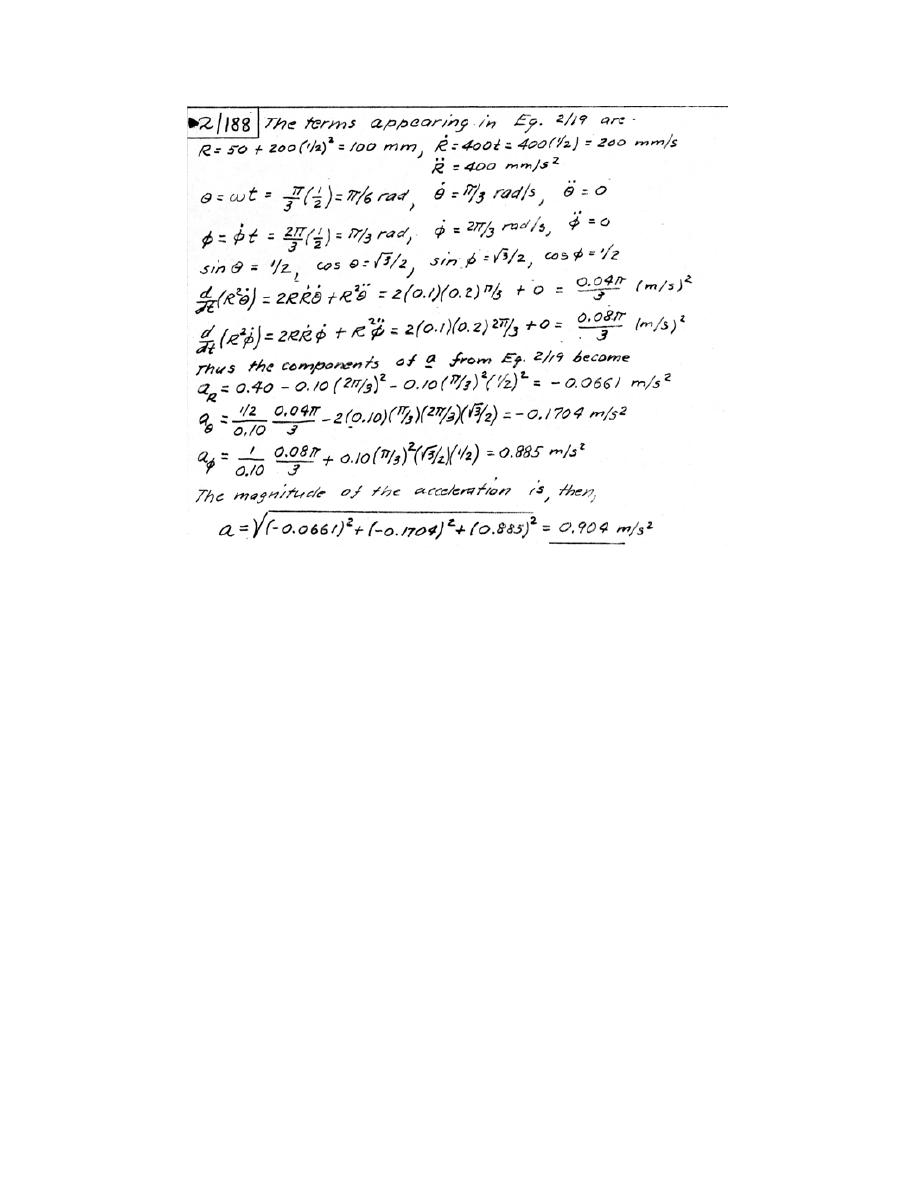 2/188 The terms appearing in Eq. 2/19 are
R = 50 + 200(1/2)² = 100 mm, Ṙ = 400t = 400(1/2) = 200 mm/s
R̈ = 400 mm/s²
θ = ωt = π/3 (1/2) = π/6 rad, θ̇ = π/3 rad/s, θ̈ = 0
ϕ = ϕ̇t = 2π/3 (1/2) = π/3 rad, ϕ̇ = 2π/3 rad/s, ϕ̈ = 0
sin θ = 1/2, cos θ = √3/2, sin ϕ = √3/2, cos ϕ = 1/2
d/dt (R²θ̇) = 2RṘθ̇ + R²θ̈ = 2(0.1)(0.2) π/3 + 0 = 0.04π/3 (m/s)²
d/dt (R²ϕ̇) = 2RṘϕ̇ + R²ϕ̈ = 2(0.1)(0.2) 2π/3 + 0 = 0.08π/3 (m/s)²
Thus the components of a from Eq. 2/19 become
a_R = 0.40 - 0.10 (2π/3)² - 0.10 (π/3)² (1/2)² = -0.0661 m/s²
a_θ = 1/2/0.10 0.04π/3 - 2(0.10)(π/3)(2π/3)(√3/2) = -0.1704 m/s²
a_ϕ = 1/0.10 0.08π/3 + 0.10 (π/3)² (√3/2)(1/2) = 0.885 m/s²
The magnitude of the acceleration is, then,
a = √(-0.0661)² + (-0.1704)² + (0.885)² = 0.904 m/s²